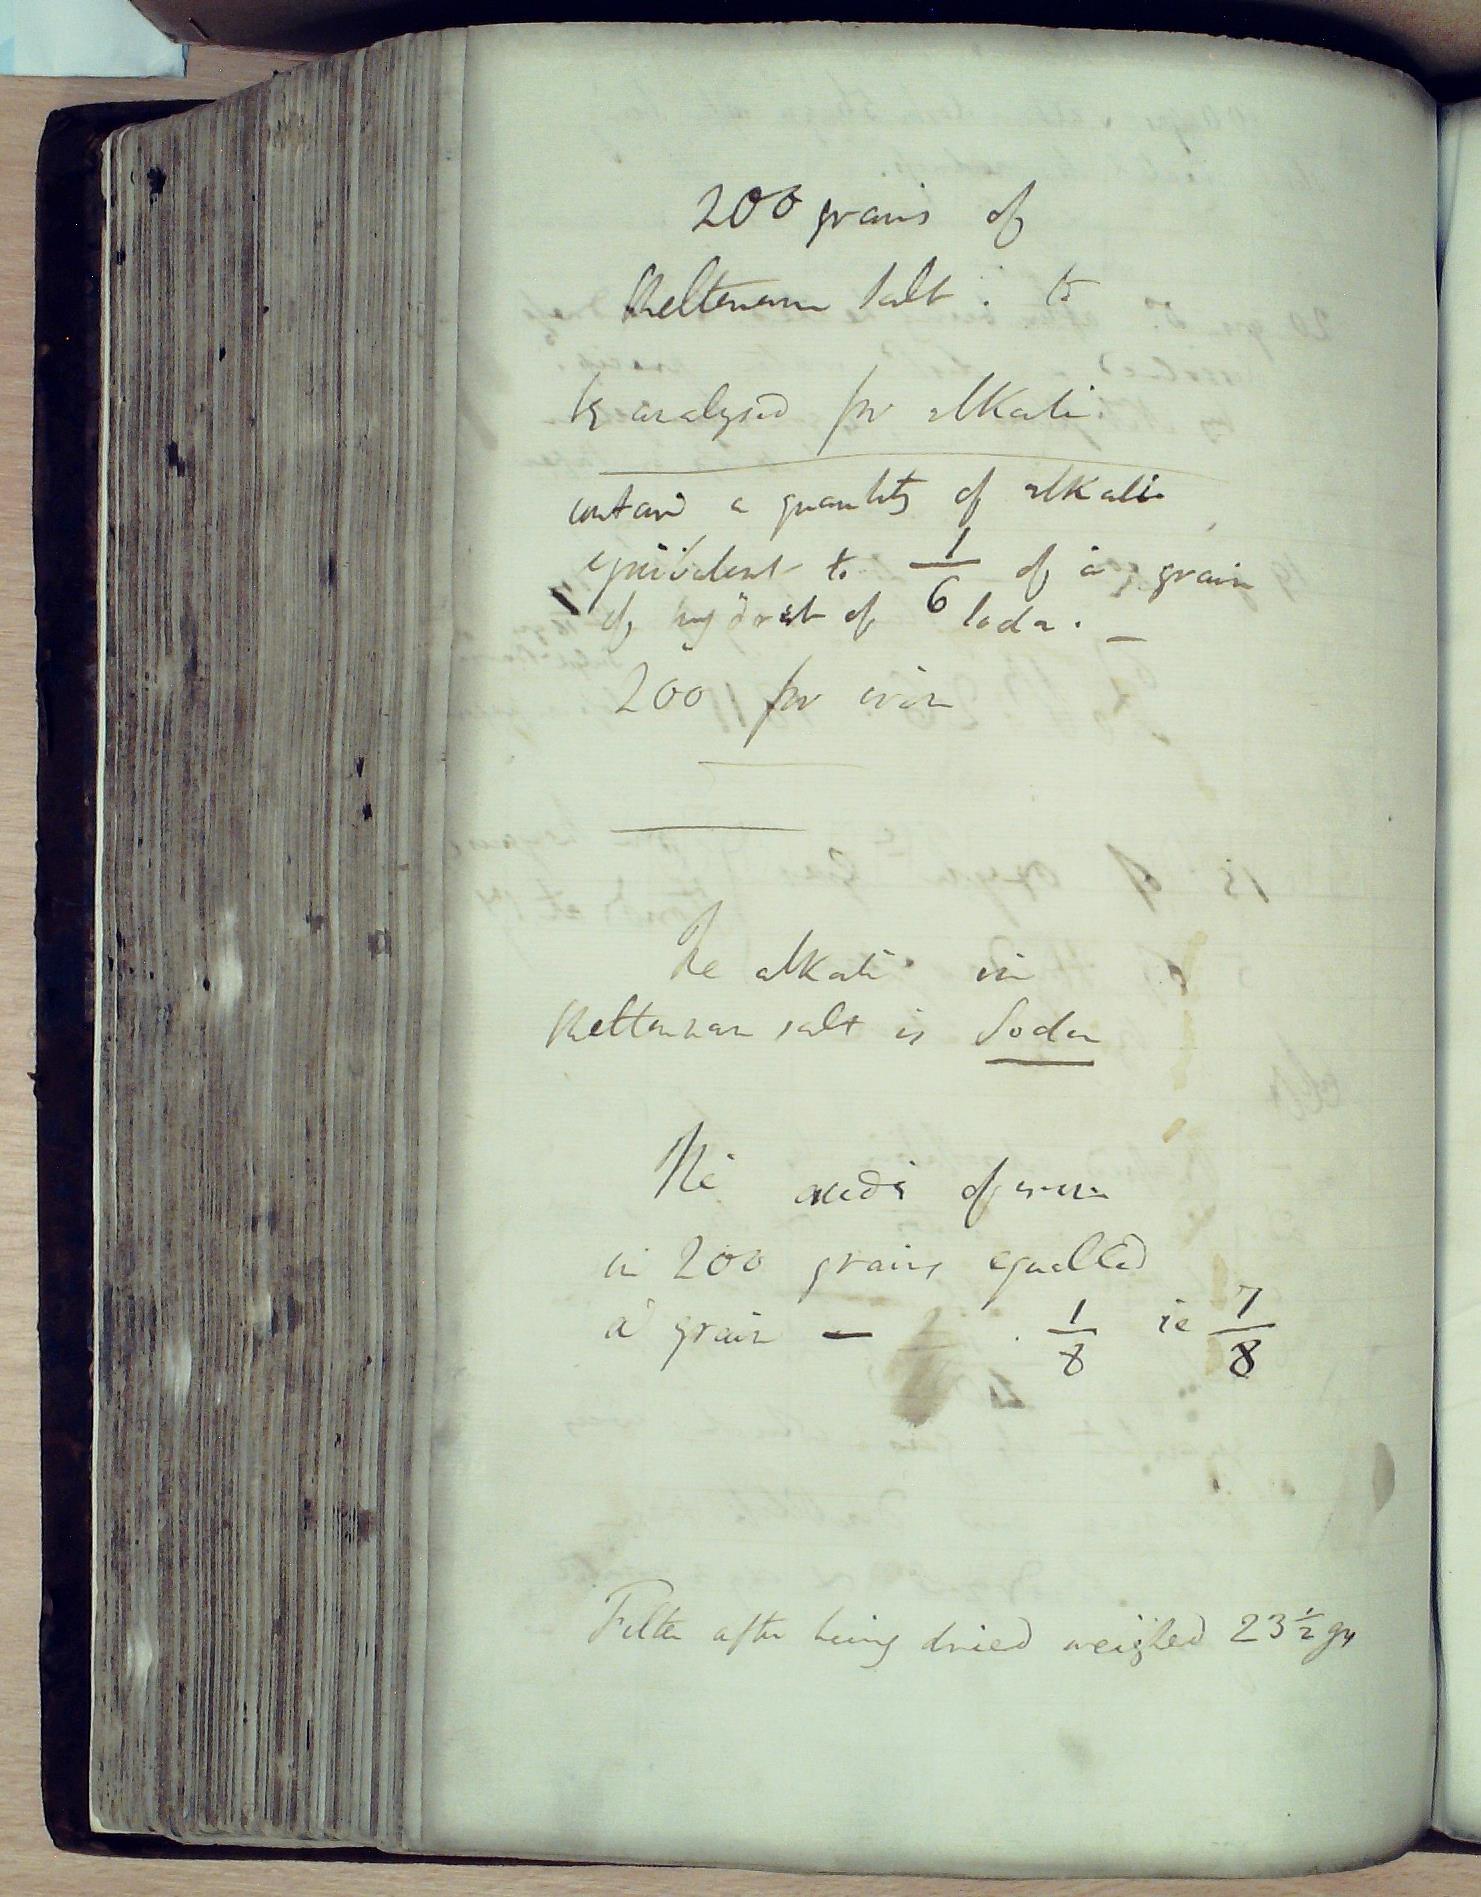 200 grains of
Cheltenam Salt. to
be analysed for alkali.
contain a quantity of alkali
equivalent to 1/6 of a grain
of hydrat of soda. _
200 for iron
The alkali in
Cheltenam salt is Soda
The oxide of iron
in 200 grains equalled
a grain — 1/8 ie 7/8
Filter after being dried weighed 23 1/2 grs